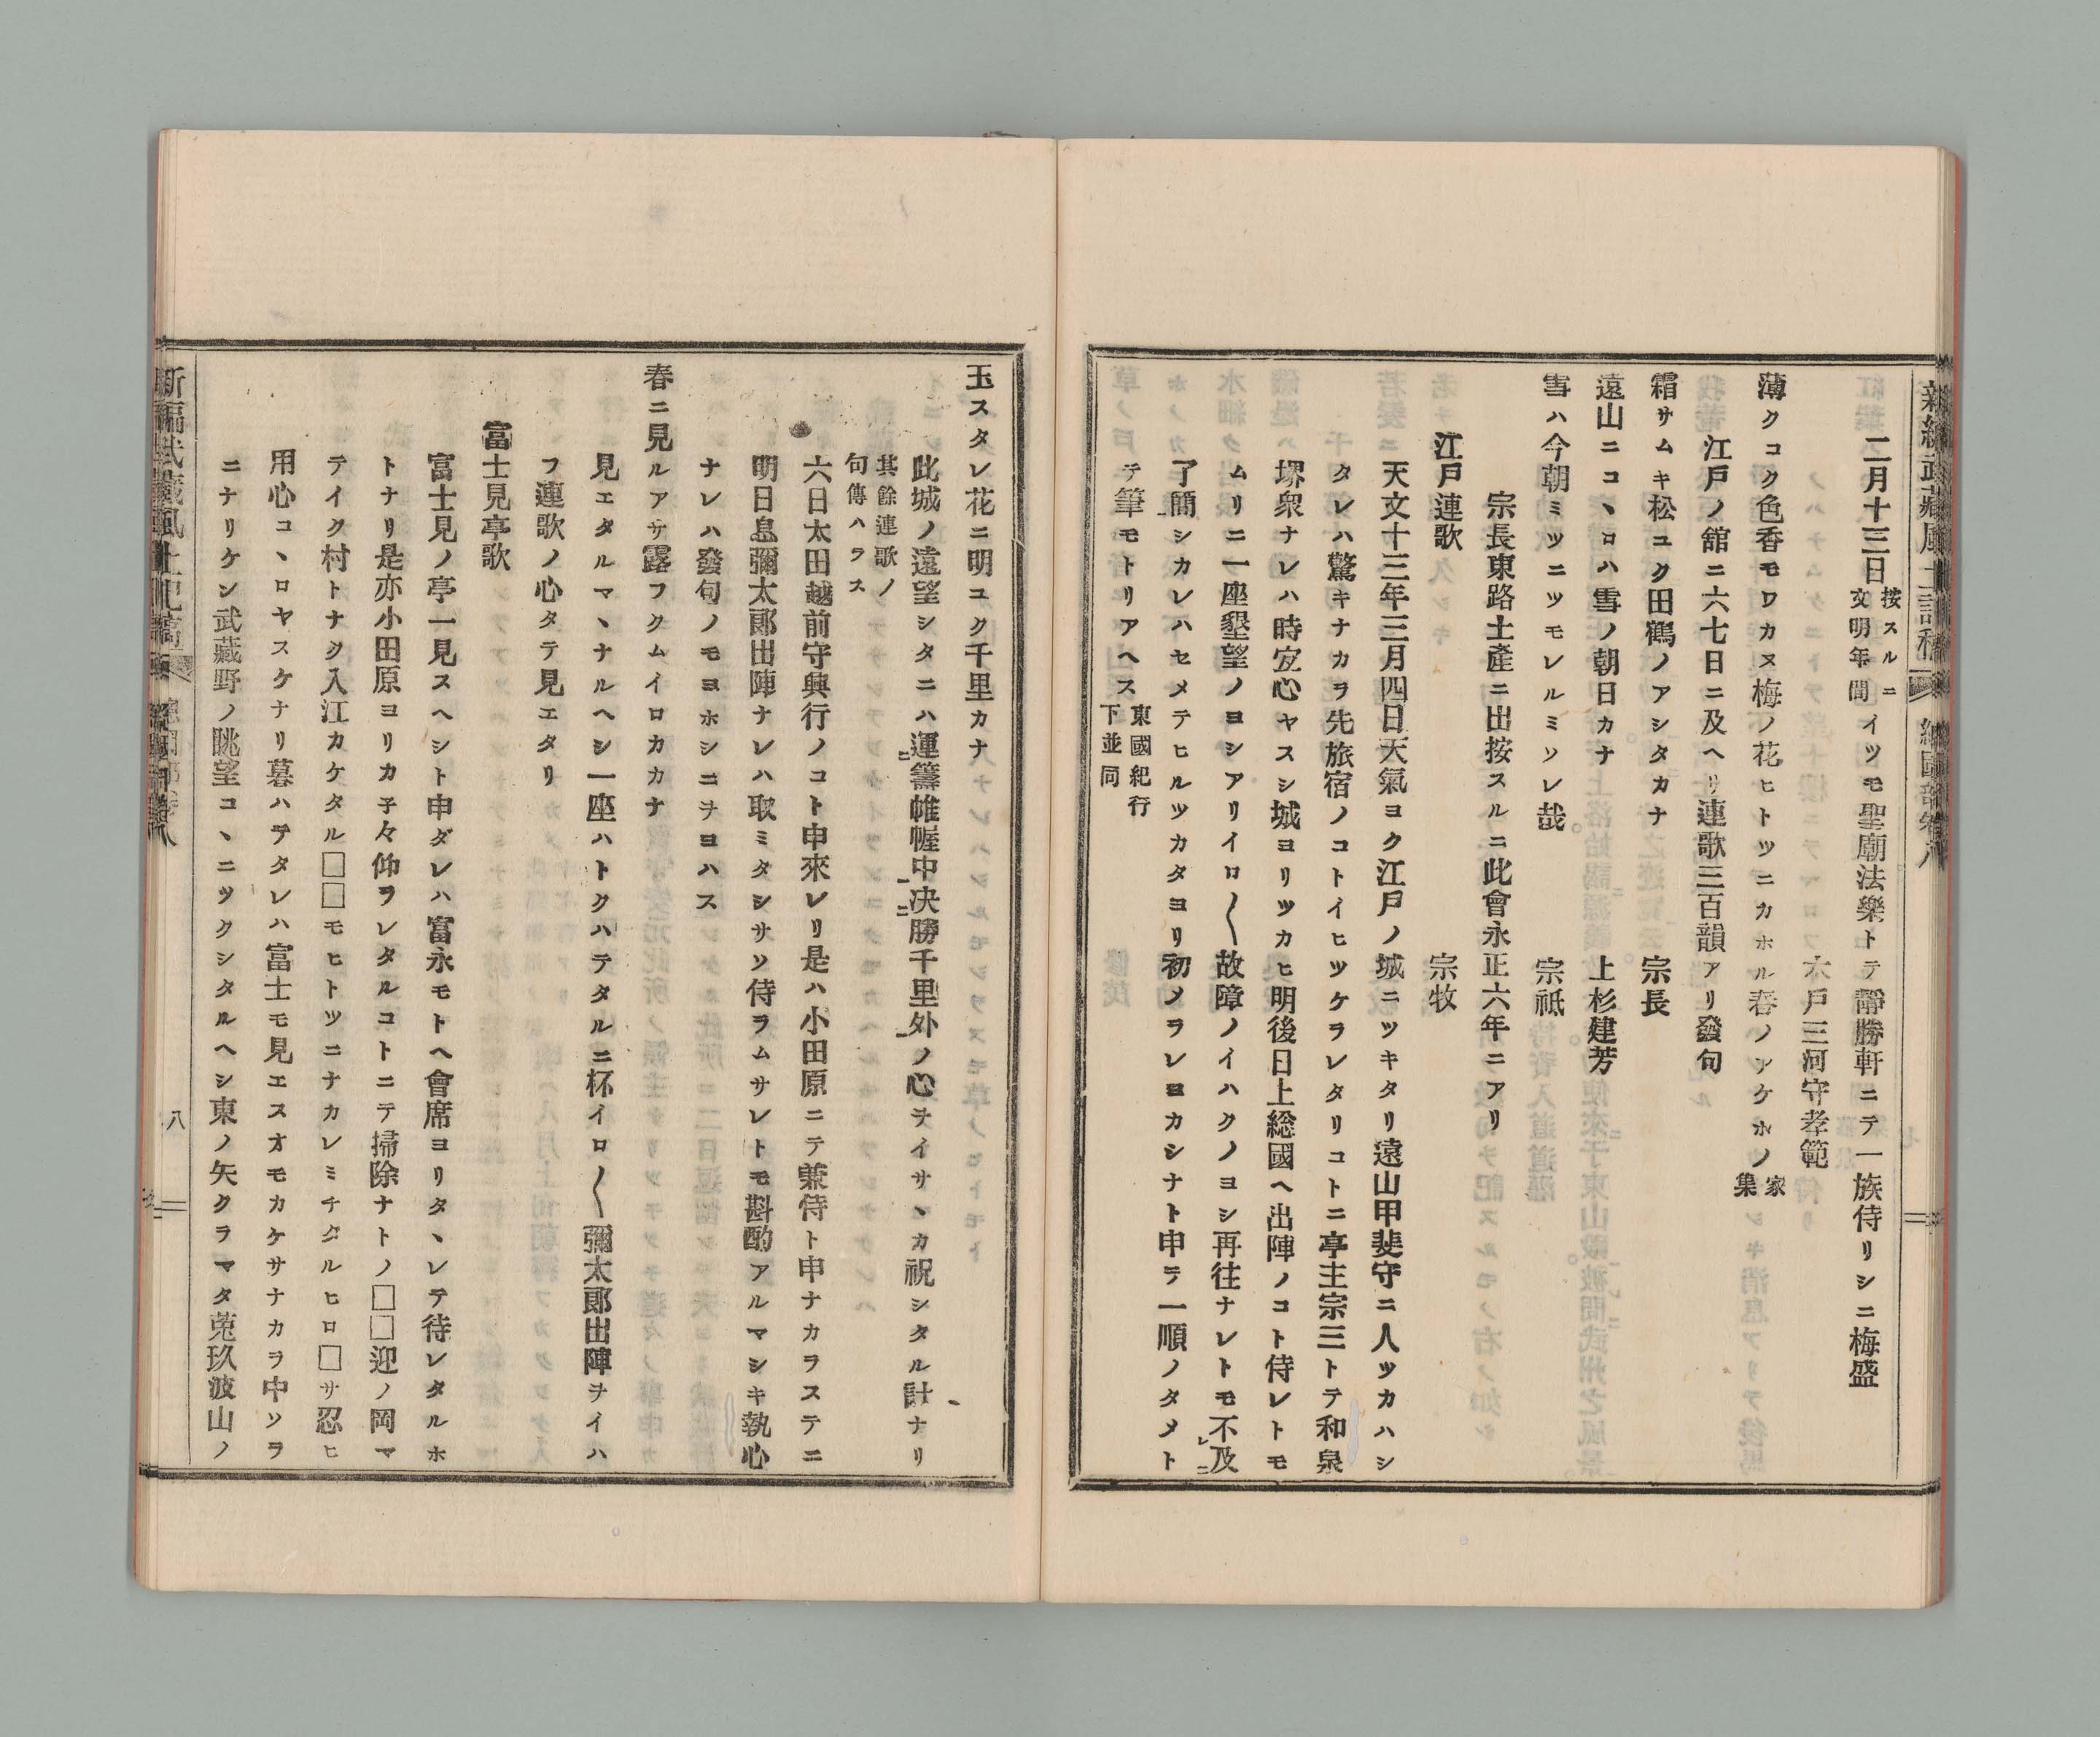 二月十三日按スルニ文明年間イツモ聖廟法樂トテ靜勝軒ニテ一族侍リシニ梅盛
木戸三河守孝範
薄クコク色香モワカヌ梅ノ花ヒトツニカホル春ノアケホノ家集
江戸ノ舘ニ六七日ニ及ヘリ連歌三百韻アリ發句
霜サムキ松ユク田鶴ノアシタカナ　宗長
遠山ニコヽロハ雪ノ朝日カナ　上杉建芳
雪ハ今朝ミツニツモレルミソレ哉　宗祗
宗長東路土產ニ出按スルニ此會永正六年ニアリ
江戸連歌　宗牧
天文十三年三月四日天氣ヨク江戸ノ城ニツキタリ遠山甲斐守ニ人ツカハシ
タレハ驚キナカラ先旅宿ノコトイヒツケラレタリコトニ亭主宗三トテ和泉
堺衆ナレハ時宜心ヤスシ城ヨリツカヒ明後日上総國ヘ出陣ノコト侍レトモ
ムリニ一座墾望ノヨシアリイロ〱故障ノイハクノヨシ再往ナレトモ不レ及ニ
了簡一シカレハセメテヒルツカタヨリ初メラレヨカシナト申テ一順ノタメト
テ筆モトリアヘス東國紀行下並同
玉スタレ花ニ明ユク千里カナ
此城ノ遠望シタニハ運ニ籌帷幄中一決ニ勝千里外一ノ心ヲイサヽカ祝シタル計ナリ
其餘連歌ノ句傳ハラス
六日太田越前守興行ノコト申來レリ是ハ小田原ニテ兼侍ト申ナカラステニ
明日息彌太郞出陣ナレハ取ミタシサソ侍ラムサレトモ斟酌アルマシキ執心
ナレハ發句ノモヨホシニヲヨハス
春ニ見ルアサ露フクムイロカカナ
見エタルマヽナルヘシ一座ハトクハテタルニ杯イロ〱彌太郞出陣ヲイハ
フ連歌ノ心タテ見エタリ
富士見亭歌
富士見ノ亭一見スヘシト申ダレハ富永モトヘ會席ヨリタヽレテ待レタルホ
トナリ是亦小田原ヨリカ子々仰ヲレタルコトニテ掃除ナトノ□□迎ノ岡マ
テイク村トナク入江カケタル□□モヒトツニナカレミチタルヒロ□サ忍ヒ
用心コヽロヤスケナリ暮ハテタレハ富士モ見エスオモカケサナカラ中ソラ
ニナリケン武藏野ノ眺望コヽニツクシタルヘシ東ノ矢クラマタ菟玖波山ノ
八